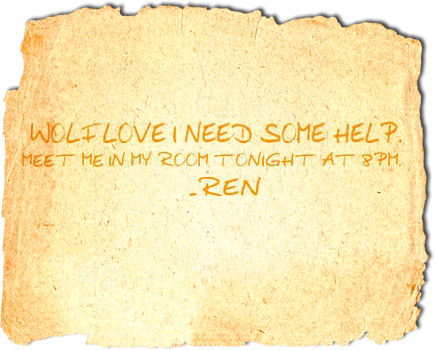 WOLFLOVE I NEED SOME HELP.
MEET ME IN MY ROOM TONIGHT AT 8PM.
-REN